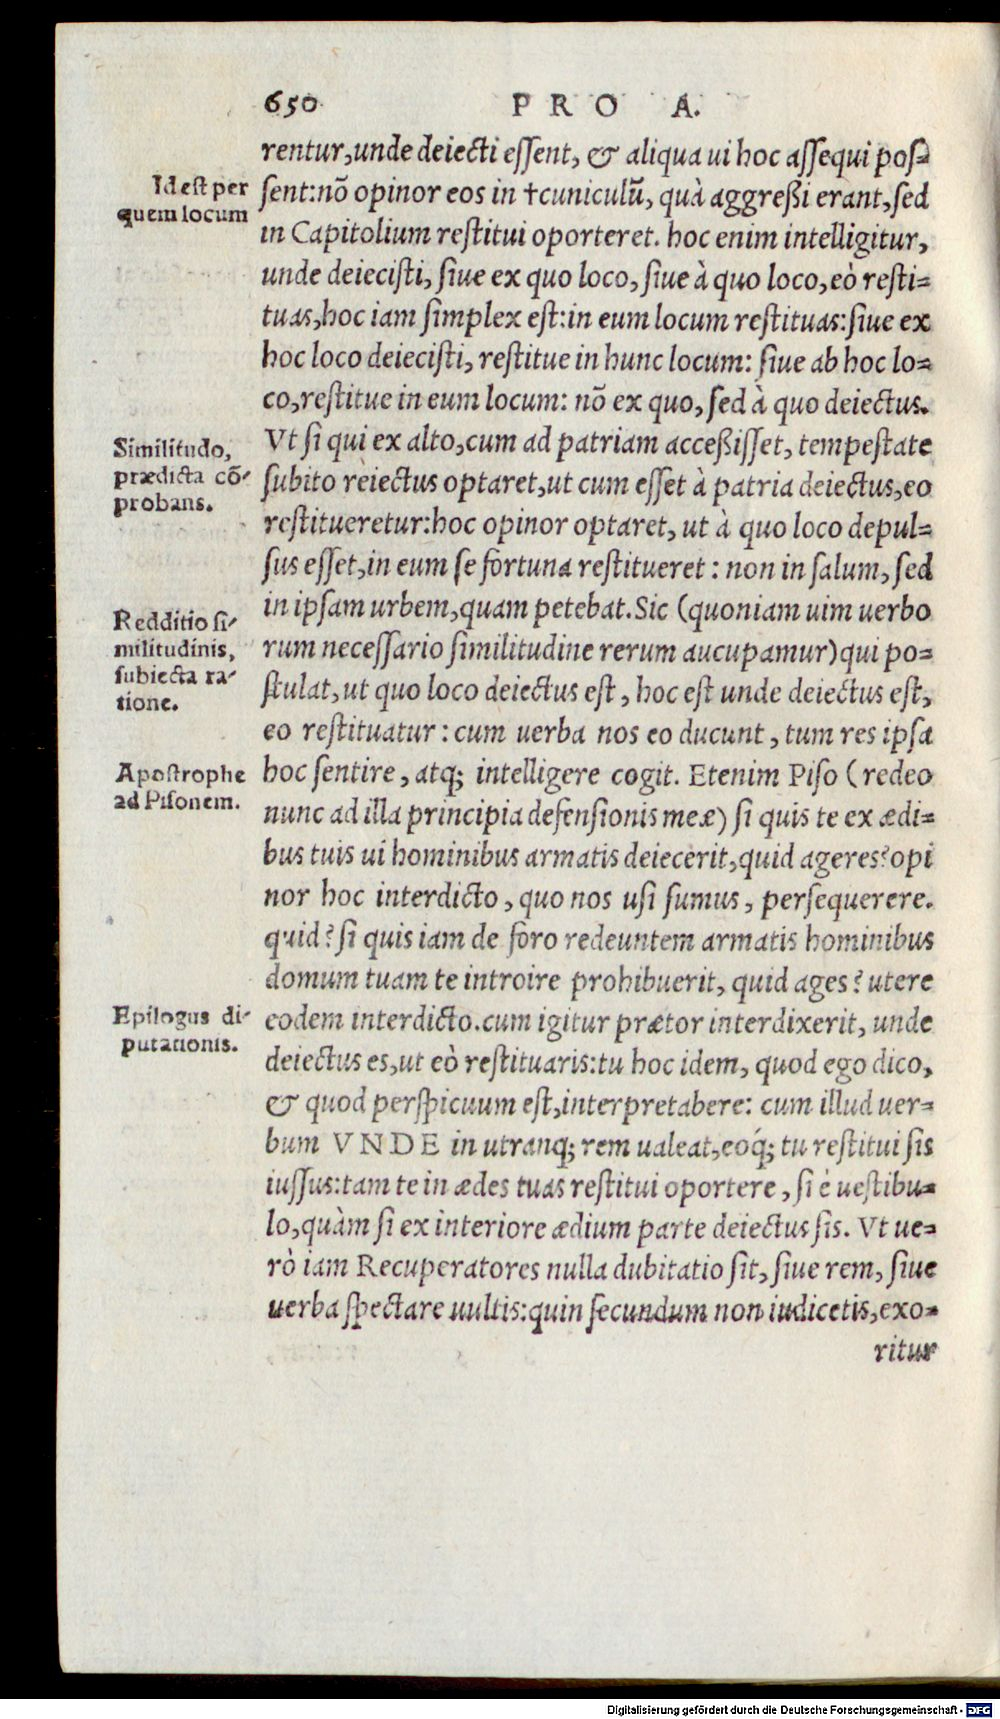 650 PRO A.
rentur,unde deiecti eſſent, & aliqua ui hoc aſſequi poſ=
ſent:nō opinor eos in †cuniculū, quà aggreßi erant,ſed
in Capitolium reſtitui oporteret. hoc enim intelligitur,
unde deieciſti, ſiue ex quo loco, ſiue à quo loco, eò reſti=
tuas,hoc iam ſimplex eſt:in eum locum reſtituas:ſiue ex
hoc loco deieciſti, reſtitue in hunc locum: ſiue ab hoc lo=
co,reſtitue in eum locum: nō ex quo, ſed à quo deiectus.
Vt ſi qui ex alto,cum ad patriam acceßiſſet, tempeſtate
ſubito reiectus optaret,ut cum eſſet à patria deiectus,eo
reſtitueretur:hoc opinor optaret, ut à quo loco depul=
ſus eſſet,in eum ſe fortuna reſtitueret : non in ſalum, ſed
in ipſam urbem,quam petebat.Sic (quoniam uim uerbo
rum neceſſario ſimilitudine rerum aucupamur)qui po=
ſtulat,ut quo loco deiectus eſt, hoc eſt unde deiectus eſt,
eo reſtituatur : cum uerba nos eo ducunt, tum res ipſa
hoc ſentire, atq; intelligere cogit. Etenim Piſo (redeo
nunc ad illa principia defenſionis meæ) ſi quis te ex ædi=
bus tuis ui hominibus armatis deiecerit,quid ageres?opi
nor hoc interdicto, quo nos uſi ſumus, perſequerere.
quid? ſi quis iam de foro redeuntem armatis hominibus
domum tuam te introire prohibuerit, quid ages? utere
eodem interdicto.cum igitur prætor interdixerit, unde
deiectus es,ut eò reſtituaris:tu hoc idem, quod ego dico,
& quod perſpicuum eſt,interpretabere: cum illud uer=
bum VNDE in utranq; rem ualeat,eoq́; tu reſtitui ſis
iuſſus:tam te in ædes tuas reſtitui oportere, ſi è ueſtibu=
lo,quàm ſi ex interiore ædium parte deiectus ſis. Vt ue=
rò iam Recuperatores nulla dubitatio ſit, ſiue rem, ſiue
uerba ſpectare uultis:quin ſecundum non iudicetis,exo=
ritur
Id eſt per
quem locum
Similitudo,
prædicta cō-
probans.
Redditio ſi-
militudinis,
ſubiecta ra-
tione.
Apoſtrophe
ad Piſonem.
Epilogus di-
putationis.
Digitalisierung gefördert durch die Deutsche Forschungsgemeinschaft - DFG